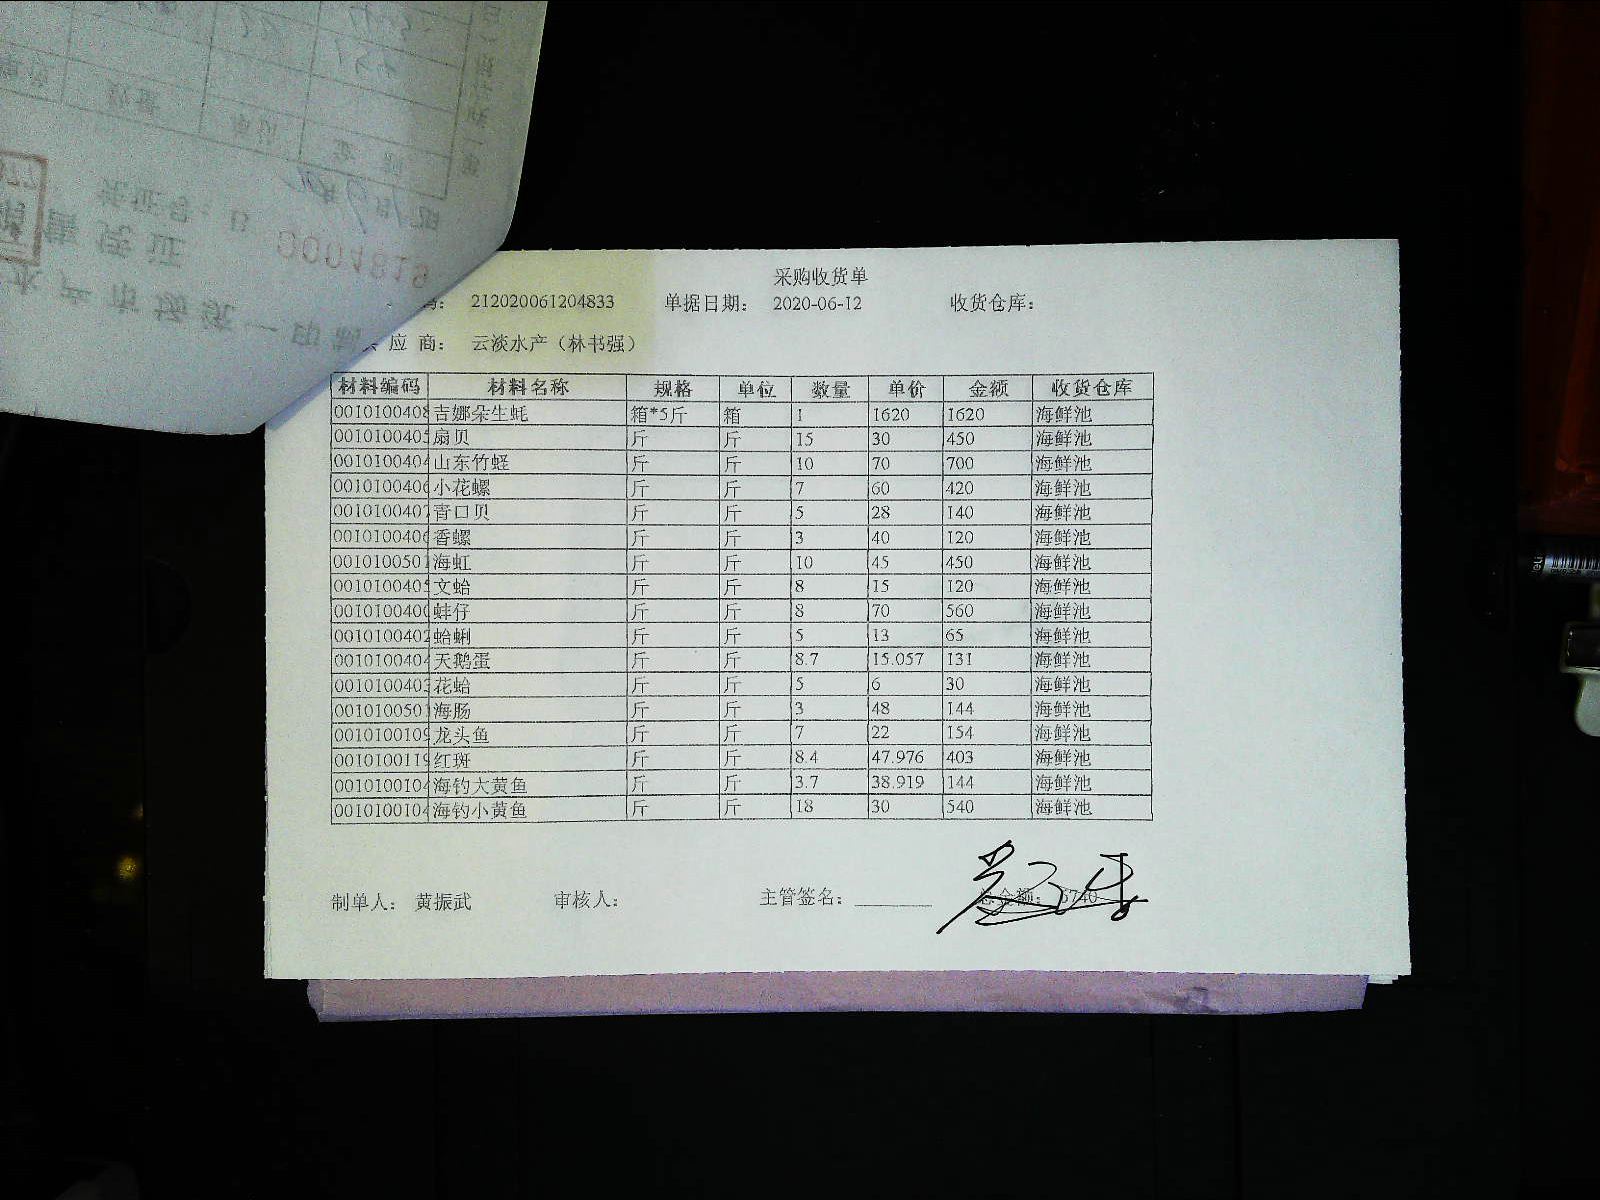 采购收货单
212020061204833 单据日期： 2020-06-12 收货仓库：
应 商： 云淡水产（林书强）
材料编码 材料名称 规格 单位 数量 单价 金额 收货仓库
0010100408 吉娜朵生蚝 箱*5斤 箱 1 1620 1620 海鲜池
001010040 扇贝 斤 斤 15 30 450 海鲜池
0010100404 山东竹蛏 斤 斤 10 70 700 海鲜池
0010100406 小花螺 斤 斤 7 60 420 海鲜池
001010040 青口贝 斤 斤 5 28 140 海鲜池
0010100406 香螺 斤 斤 3 40 120 海鲜池
001010050 海虹 斤 斤 10 45 450 海鲜池
001010040 文蛤 斤 斤 8 15 120 海鲜池
0010100400 蛙仔 斤 斤 8 70 560 海鲜池
0010100402 蛤蜊 斤 斤 5 13 65 海鲜池
0010100404 天鹅蛋 斤 斤 8.7 15.057 131 海鲜池
0010100403 花蛤 斤 斤 5 6 30 海鲜池
001010050 海肠 斤 斤 3 48 144 海鲜池
0010100109 龙头鱼 斤 斤 7 22 154 海鲜池
0010100119 红斑 斤 斤 8.4 47.976 403 海鲜池
0010100104 海钓大黄鱼 斤 斤 3.7 38.919 144 海鲜池
0010100104 海钓小黄鱼 斤 斤 18 30 540 海鲜池
制单人： 黄振武 审核人： 主管签名： 总金额：